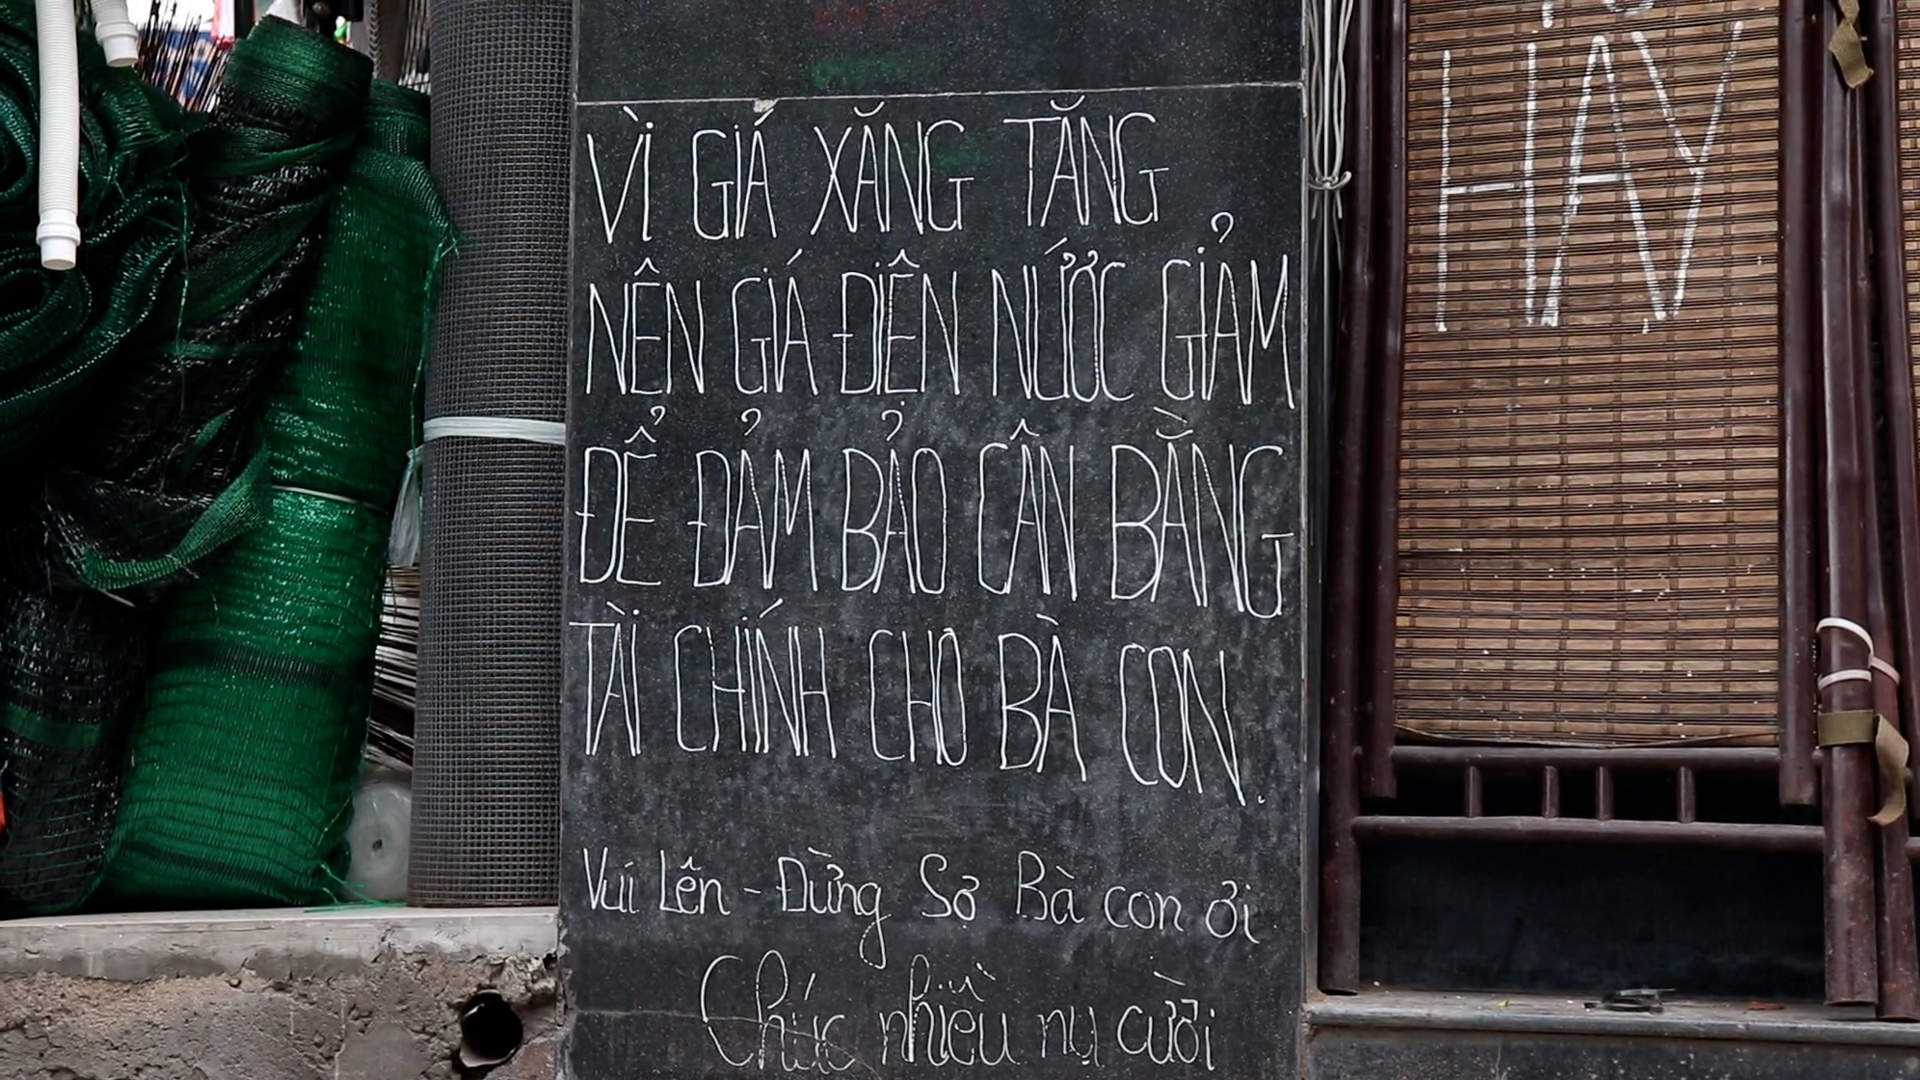 VÌ GIÁ XĂNG TĂNG
NÊN GIÁ ĐIỆN NƯỚC GIẢM
ĐỂ ĐẢM BẢO CÂN BẰNG
TÀI CHÍNH CHO BÀ CON.
Vui Lên - Đừng Sợ Bà con ơi
Chúc nhiều nụ cười
HAY